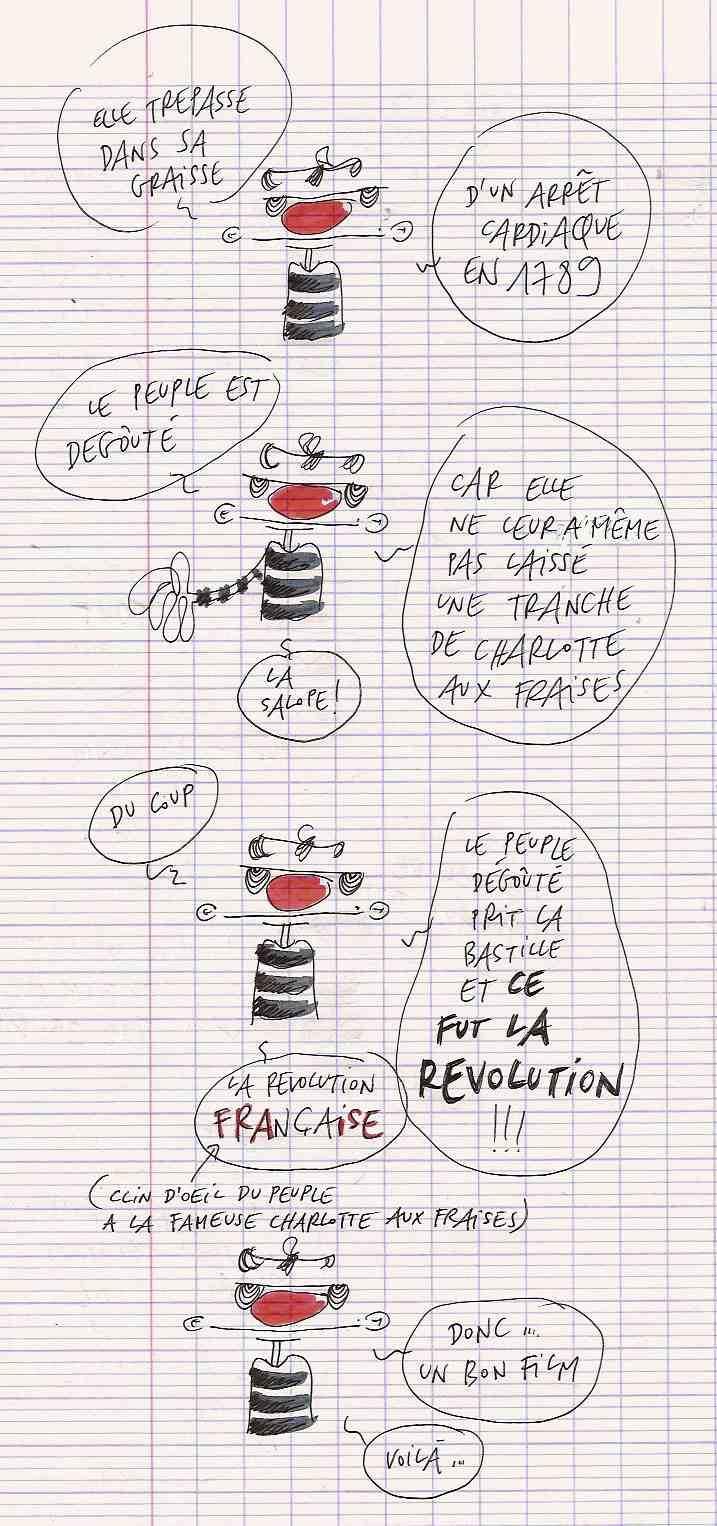 ELLE TREPASSE
DANS SA
GRAISSE
D'UN ARRÊT
CARDIAQUE
EN 1789
LE PEUPLE EST
DEGOÛTÉ
CAR ELLE
NE LEUR A MÊME
PAS LAISSÉ
UNE TRANCHE
DE CHARLOTTE
AUX FRAISES
LA
SALOPE!
DU COUP
LE PEUPLE
DÉGOÛTÉ
PRIT LA
BASTILLE
ET CE
FUT LA
REVOLUTION
!!!
LA REVOLUTION
FRANÇAISE
(CLIN D'OEIL DU PEUPLE
A LA FAMEUSE CHARLOTTE AUX FRAISES)
DONC...
UN BON FILM
VOILÀ...